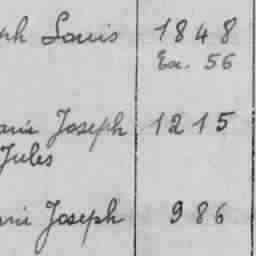 ph Louis 1848
Ex. 56
Joseph 1215
Jules
Joseph 986